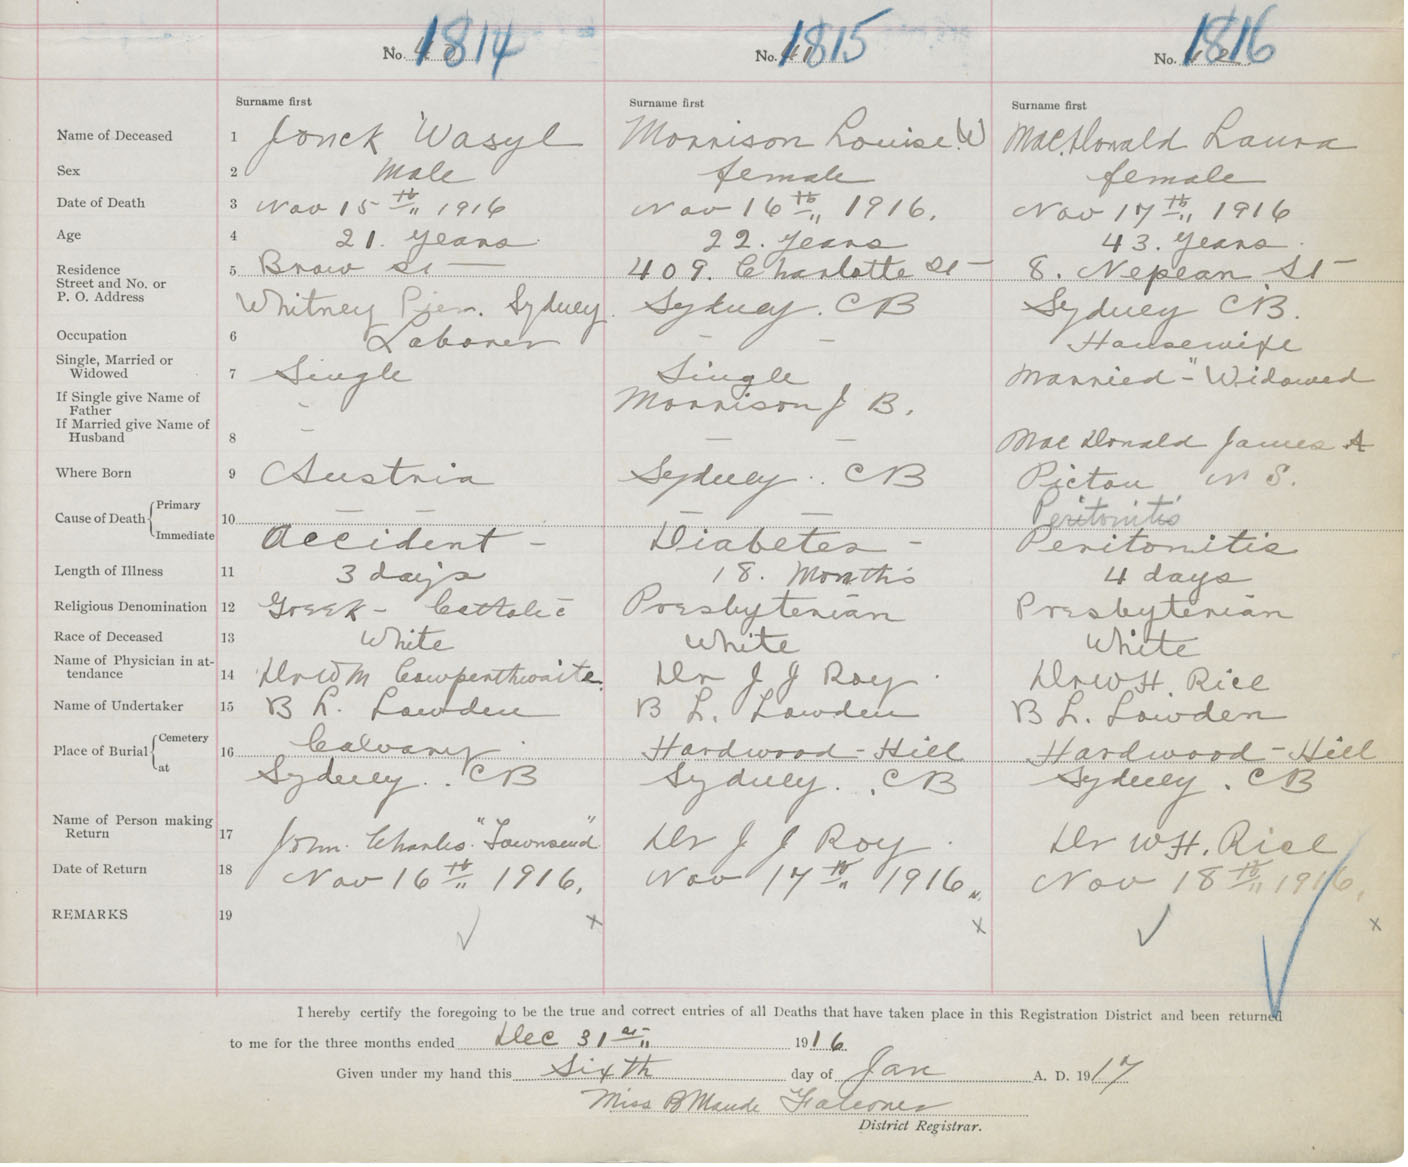 No. 1814 No. 41 1815 No. 1816
Surname first Surname first Surname first
Name of Deceased 1 Jonck Wasyl Morrison Louise (W) MacDonald Laura
Sex 2 Male female female
Date of Death 3 Nov 15th 1916 Nov 16th 1916. Nov 17th 1916
Age 4 21. Years 22. Years 43. Years
Residence 5 St — 409. Charlotte St — 8. Nepean St —
Street and No. or
P. O. Address Whitney Pier. Sydney. Sydney. CB Sydney CB.
Occupation 6 Laborer – – Housewife
Single, Married or
Widowed 7 Single Single Married - "Widowed
If Single give Name of
Father – Morrison J B.
If Married give Name of
Husband 8 – – – MacDonald James A
Where Born 9 Austria Sydney .. CB Pictou N S.
Cause of Death Primary 10 – – – – Peritonitis
Immediate Accident – Diabetes – Peritonitis
Length of Illness 11 3 days 18. Months 4 days
Religious Denomination 12 Greek - Catholic Presbyterian Presbyterian
Race of Deceased 13 White White White
Name of Physician in at-
tendance 14 Dr W M Cowperthwaite. Dr J J Roy. Dr W H. Rice
Name of Undertaker 15 B L. Lowden B L. Lowden B L. Lowden
Place of Burial Cemetery 16 Calvary Hardwood - Hill Hardwood - Hill
at Sydney.. CB Sydney.. CB Sydney. CB
Name of Person making
Return 17 John Charles "Townsend" Dr J J Roy. Dr W H. Rice
Date of Return 18 Nov 16th 1916, Nov 17th 1916 Nov 18th 1916,
REMARKS 19 x x x
I hereby certify the foregoing to be the true and correct entries of all Deaths that have taken place in this Registration District and been returned
to me for the three months ended Dec 31st 1916
Given under my hand this Sixth day of Jan A. D. 1917
Miss B Maude Falconer
District Registrar.